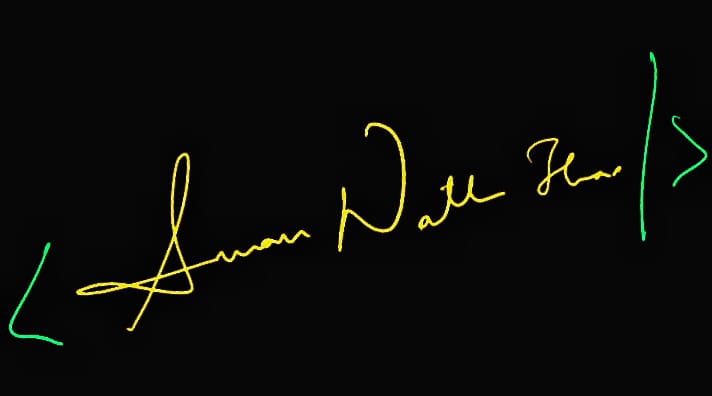 < Suman Nath Jha |>